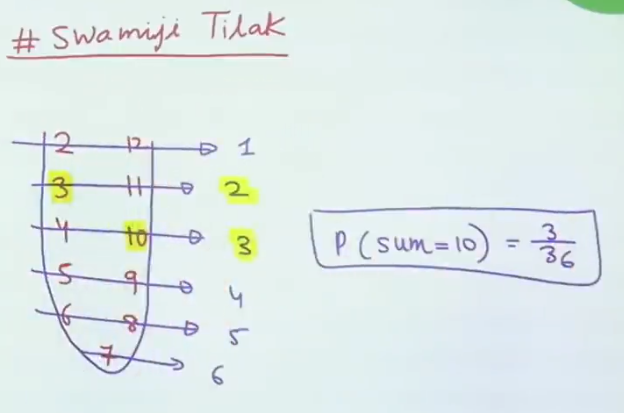 # Swamiji Tilak
2 12 1
3 11 2
4 10 3
5 9 4
6 8 5
7 6
P (sum=10) = 3/36